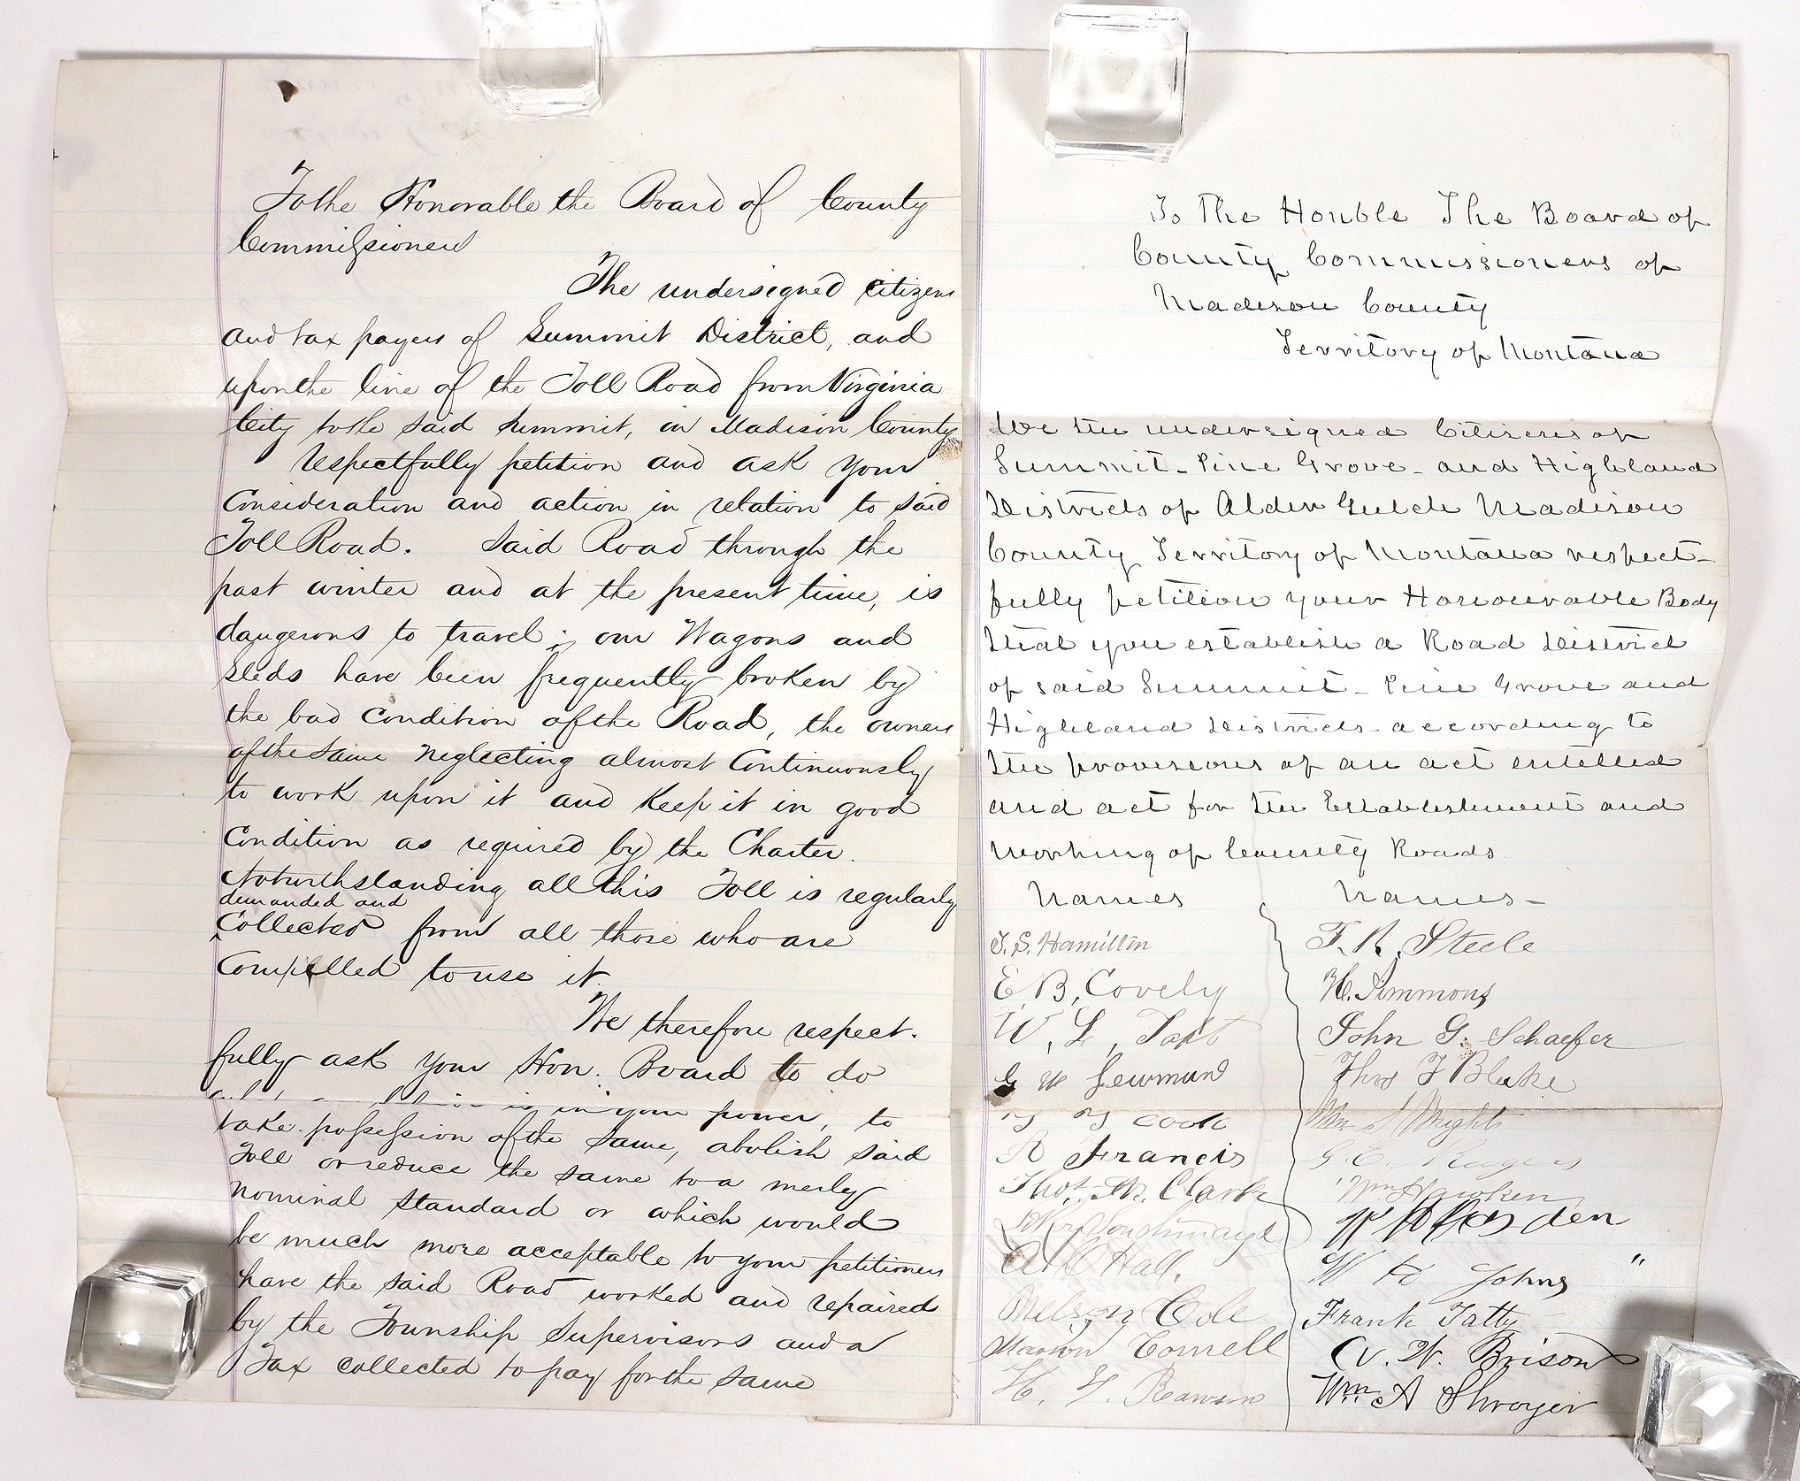 To the Honorable the Board of County
Commissioners
The undersigned citizens
and tax payers of Summit District, and
upon the line of the Toll Road from Virginia
City to the said Summit, in Madison County
respectfully petition and ask your
consideration and action in relation to said
Toll Road. Said Road through the
past winter and at the present time, is
dangerous to travel; our Wagons and
Sleds have been frequently broken by
the bad condition of the Road, the owners
of the same neglecting almost continuously
to work upon it and keep it in good
condition as required by the Charter.
Notwithstanding all this Toll is regularly
demanded and
collected from all those who are
compelled to use it.
We therefore respect-
fully ask your Hon. Board to do
is in your power, to
take possession of the same, abolish said
Toll or reduce the same to a merly
nominal standard or which would
be much more acceptable to your petitioners
have the said Road worked and repaired
by the Township Supervisors and a
Tax collected to pay for the same
To The Honble The Board of
County Commissioners of
Madison County
Territory of Montana
We the undersigned Citizens of
Summit - Pine Grove - and Highland
Districts of Alder Gulch Madison
County Territory of Montana respect-
fully petition your Honourable Body
that you establish a Road District
of said Summit - Pine Grove and
Highland Districts - according to
the provisions of an act entitled
and act for the Establishment and
Working of County Roads
Names Names -
J. S. Hamilton F. R. Steele
E. B. Covely H. Simmons
W. L. John G. Schaefer
G W Thos F Blake
Cook Wm Wright
R Francis G. C.
Thos. Clark Wm Hawken
Hall. W Johns "
Nelson Cole Frank Tatty
Marion Cornell W. Brison
H. Wm A Shroyer